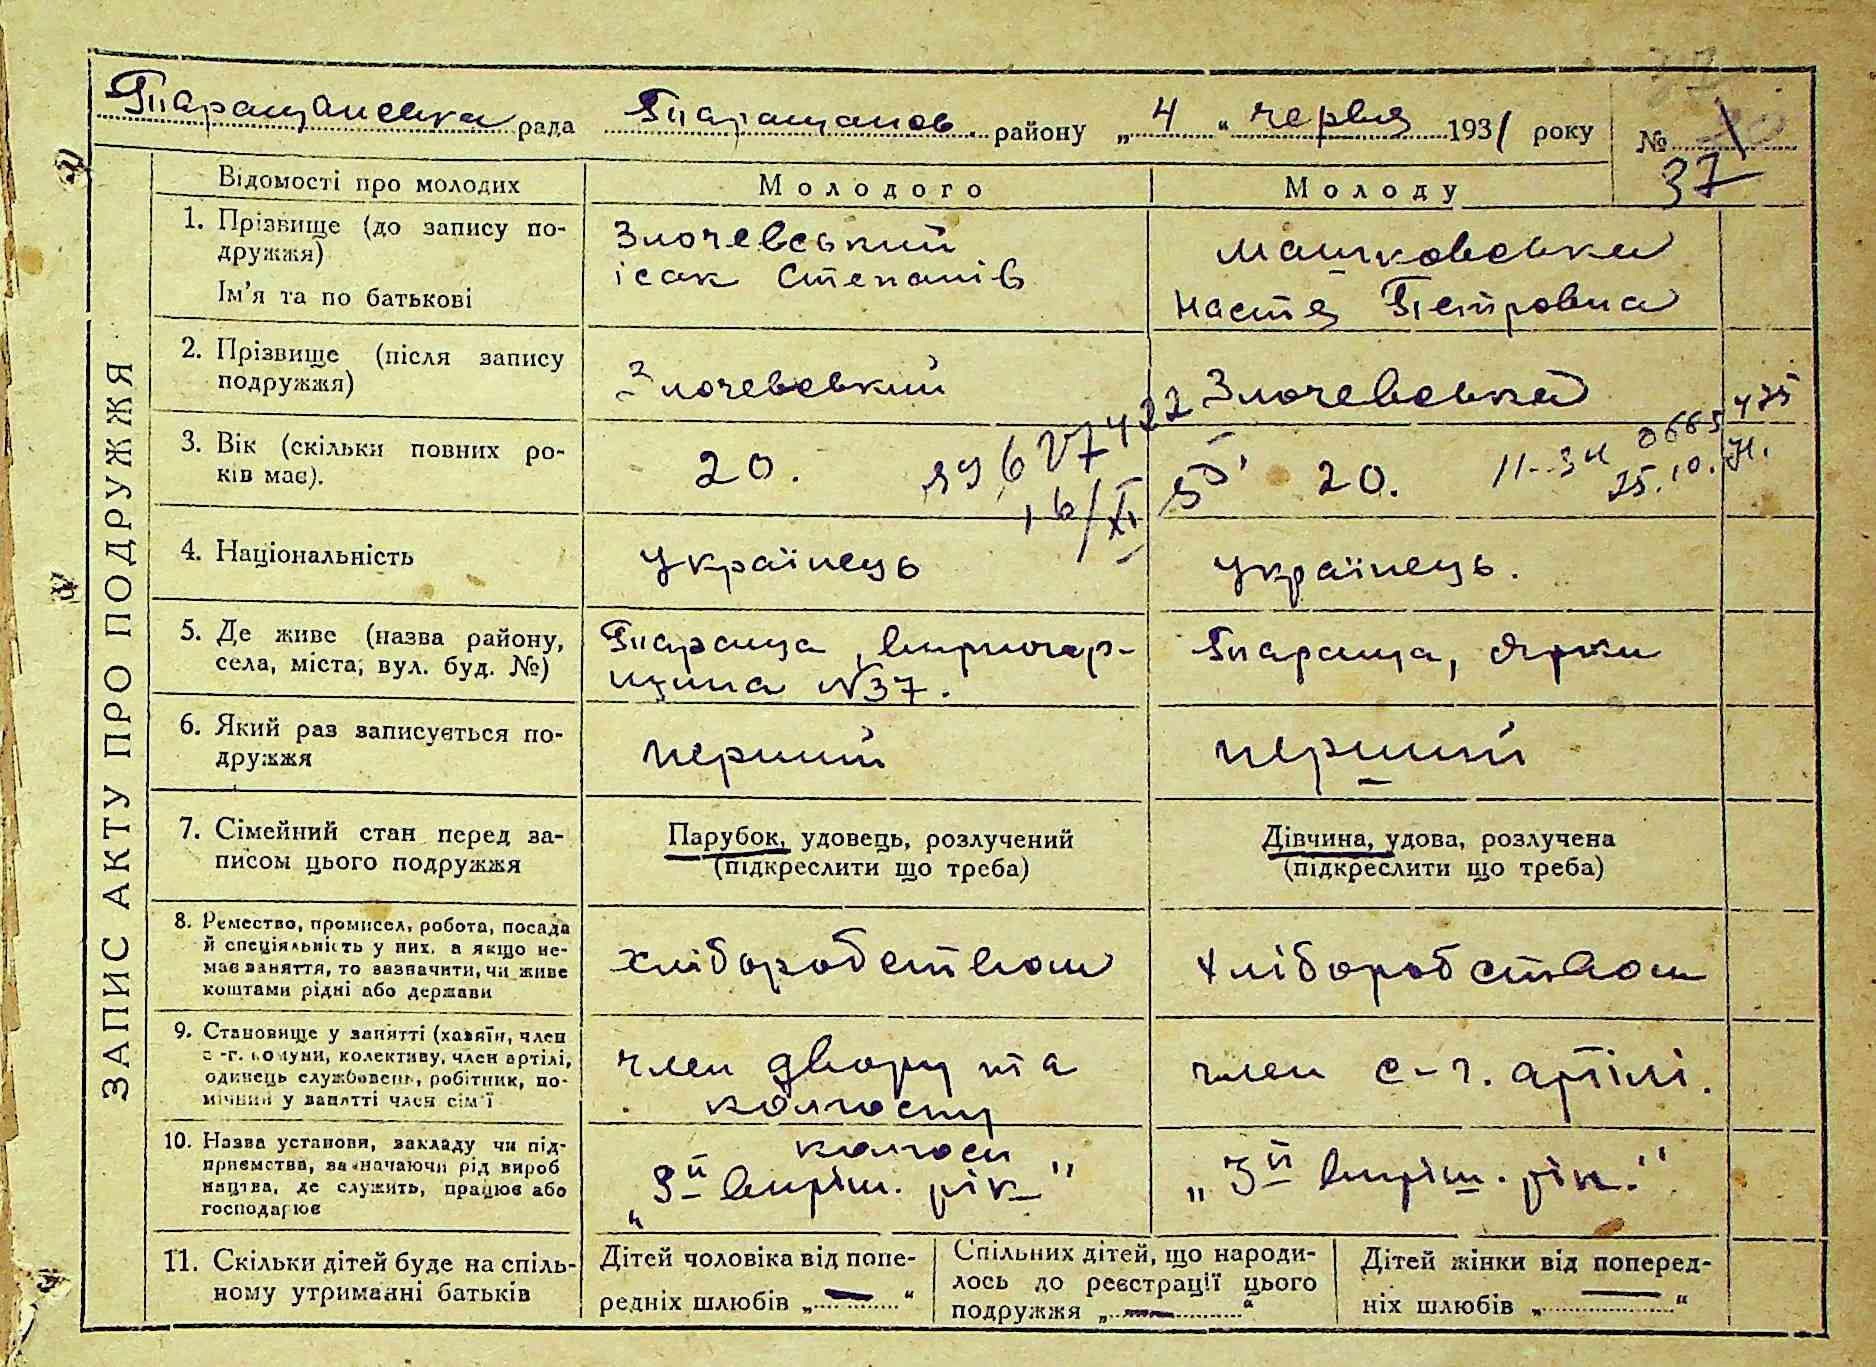 Таращанська рада Таращанов. району „4“ червня 1931 року №
37
ЗАПИС АКТУ ПРО ПОДРУЖЖЯ
Відомості про молодих
Молодого
Молоду
1. Прізвище (до запису по-
дружжя)
Ім'я та по батькові
Злочевський
ісак Степанів
Машковська
Настя Петровна
2. Прізвище (після запису
подружжя)
Злочевський
Злочевська
3. Вік (скільки повних ро-
ків має).
20.
16/XI
20.
25.10.
4. Національність
українець
українець.
5. Де живе (назва району,
села, міста, вул. буд. №)
Тараща,
щина №37.
Тараща, Ярки
6. Який раз записується по-
дружжя
перший
перший
7. Сімейний стан перед за-
писом цього подружжя
Парубок, удовець, розлучений
(підкреслити що треба)
Дівчина, удова, розлучена
(підкреслити що треба)
8. Ремество, промисел, робота, посада
й спеціяльність у них, а якщо не-
має заняття, то зазначити, чи живе
коштами рідні або держави
хліборобством
хліборобством
9. Становище у занятті (хазяїн, член
с.-г. комуни, колективу, член артілі,
одинець службовець, робітник, по-
мічний у занятті член сім'ї
член двору та
колгоспу
член с-г. артілі.
10. Назва установи, закладу чи під-
приємства, зазначаючи рід вироб
ництва, де служить, працює або
господарює
колгосп
„3й виріш. рік“
„3й виріш. рік.“
11. Скільки дітей буде на спіль-
ному утриманні батьків
Дітей чоловіка від попе-
редніх шлюбів „—“
Спільних дітей, що народи-
лось до реєстрації цього
подружжя „—“
Дітей жінки від поперед-
ніх шлюбів „—“